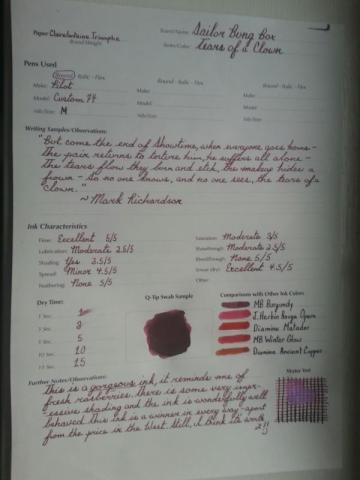 Paper Clairefontaine Triomphe
Brand Name: Sailor Bung Box
Brand Weight:
Series/Color: Tears of a Clown
Pens Used
Round - Italic - Flex
Round - Italic - Flex
Round - Italic - Flex
Make: Pilot
Make:
Make:
Model: Custom 74
Model:
Model:
Nib/Size: M
Nib/Size:
Nib/Size:
Writing Samples/Observations:
"But come the end of Showtime, when everyone goes home -
the pain returns to torture him, he suffers all alone -
the tears flow they burn and etch, the makeup hides a
frown - so no one knows, and no one sees, the tears of a
Clown."
~ Mark Richardson
Ink Characteristics
Flow: Excellent 5/5
Saturation: Moderate 3/5
Lubrication: Moderate 2.5/5
Showthrough: Moderate 2.5/5
Shading: Yes 3.5/5
Bleedthrough: None 5/5
Spread: Minor 4.5/5
Smear (dry): Excellent 4.5/5
Feathering: None 5/5
Other:
Dry Time:
Q-Tip Swab Sample
Comparison with Other Ink Colors
1 Sec.
MB Burgundy
J. Herbin Rouge Opera
5
Diamine Matador
10 Sec. 10
MB Winter Glow
15
Diamine Ancient Copper
Further Notes/Observations:
Water Test
This is a gorgeous ink, it reminds me of
fresh rasberries. there is some very impr-
-essive shading and the ink is wonderfully well
behaved. This ink is a winner in every way - apart
from the price in the West. Still, I think its worth
it!!